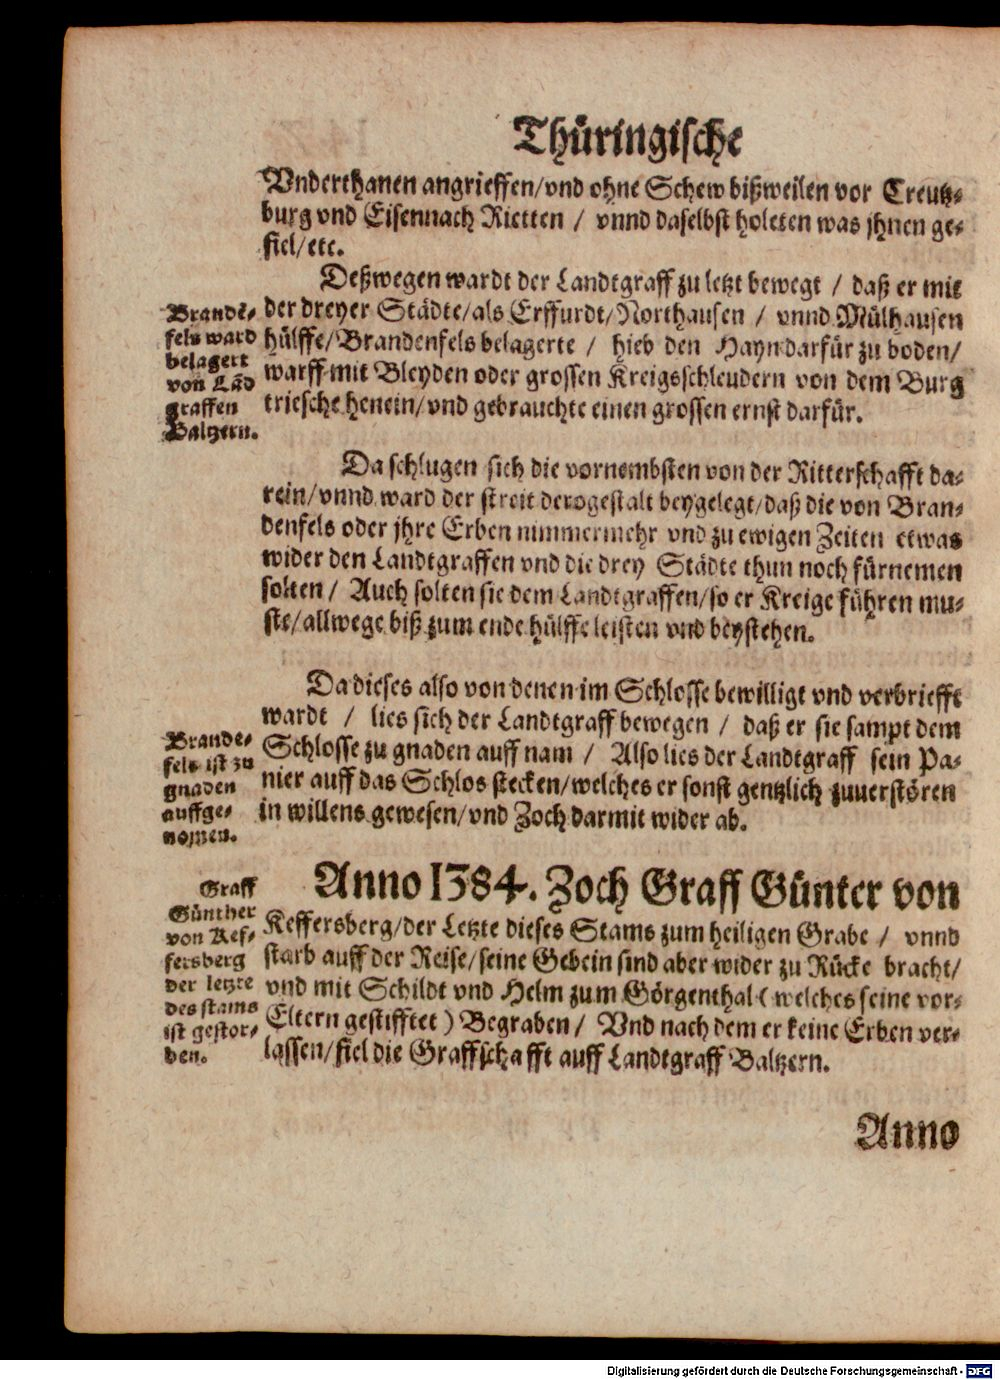 Thüringische
Vnderthanen angrieffen/vnd ohne Schew bißweilen vor Creutz-
burg vnd Eisennach Rietten / vnnd daselbst holeten was jhnen ge-
fiel/etc.
Deßwegen wardt der Landtgraff zu letzt bewegt / daß er mit
der dreyer Städte/als Erffurdt/Northausen / vnnd Mülhausen
hülffe/Brandenfels belagerte / hieb den Hayn darfür zu boden/
warff mit Bleyden oder grossen Kreigsschleudern von dem Burg
triesche henein/vnd gebrauchte einen grossen ernst darfür.
Brandē-
fels ward
belagert
von Lād
graffen
Baltzern.
Da schlugen sich die vornembsten von der Ritterschafft da-
rein/vnnd ward der streit derogestalt beygelegt/daß die von Bran-
denfels oder jhre Erben nimmermehr vnd zu ewigen Zeiten etwas
wider den Landtgraffen vnd die drey Städte thun noch fürnemen
solten / Auch solten sie dem Landtgraffen/so er Kreige führen mu-
ste/allwege biß zum ende hülffe leisten vnd beystehen.
Da dieses also von denen im Schlosse bewilligt vnd verbriefft
wardt / lies sich der Landtgraff bewegen / daß er sie sampt dem
Schlosse zu gnaden auff nam / Also lies der Landtgraff sein Pa-
nier auff das Schlos stecken/welches er sonst gentzlich zuuerstören
in willens gewesen/vnd Zoch darmit wider ab.
Brande-
fels ist zu
gnaden
auffge-
nomen.
Anno 1384. Zoch Graff Günter von
Keffersberg/der Letzte dieses Stams zum heiligen Grabe / vnnd
starb auff der Reise/seine Gebein sind aber wider zu Rücke bracht/
vnd mit Schildt vnd Helm zum Görgenthal ( welches seine vor-
Eltern gestifftet ) Begraben / Vnd nach dem er keine Erben ver-
lassen/fiel die Graffschafft auff Landtgraff Baltzern.
Graff
Günther
von Kef-
fersberg
der letzte
des stams
ist gestor-
ben.
Anno
Digitalisierung gefördert durch die Deutsche Forschungsgemeinschaft - DFG